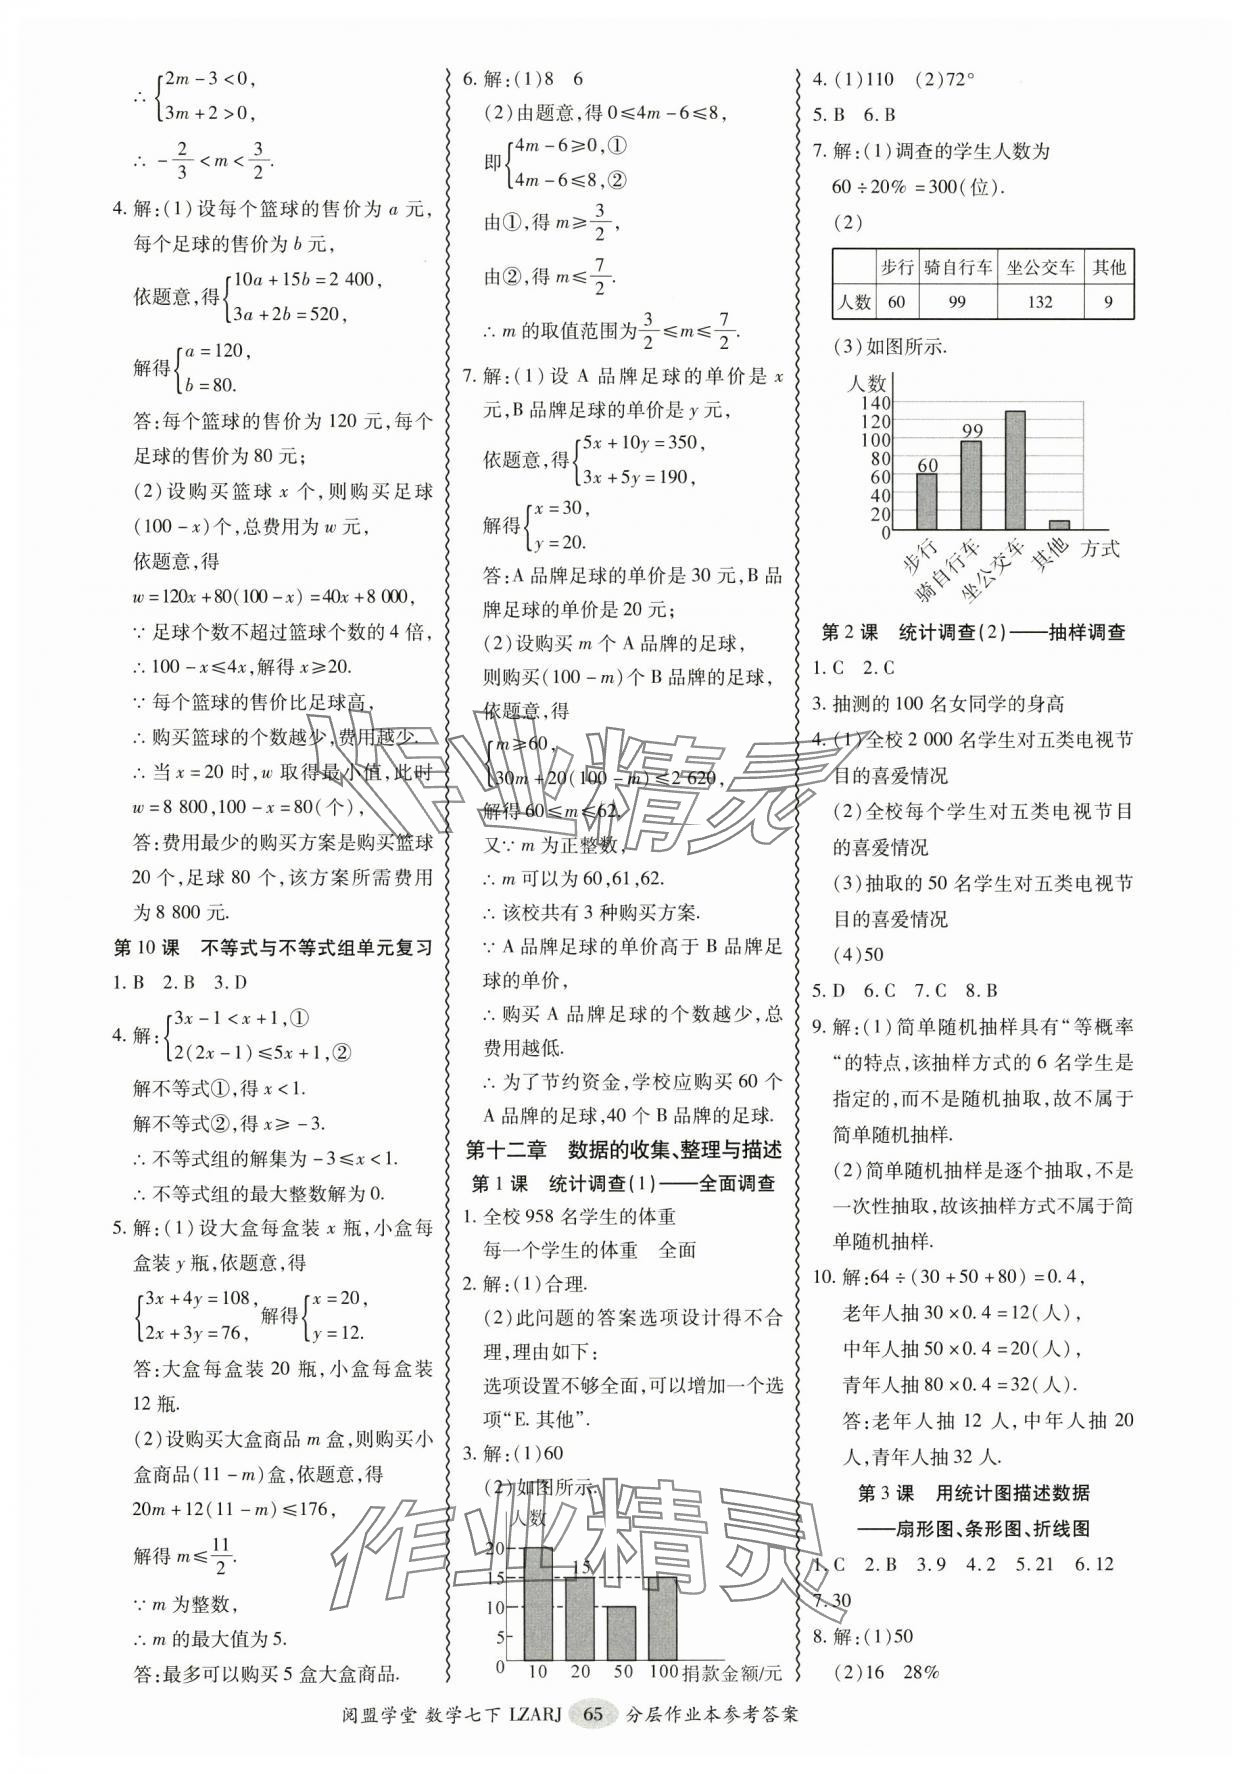 ∴ {2m-3<0,
3m+2>0,
∴ -2/3<m<3/2.
4. 解:(1)设每个篮球的售价为 a 元,
每个足球的售价为 b 元,
依题意,得{10a+15b=2 400,
3a+2b=520,
解得{a=120,
b=80.
答:每个篮球的售价为 120 元,每个
足球的售价为 80 元;
(2)设购买篮球 x 个,则购买足球
(100-x)个,总费用为 w 元,
依题意,得
w=120x+80(100-x)=40x+8 000,
∵足球个数不超过篮球个数的 4 倍,
∴100-x≤4x,解得 x≥20.
∵每个篮球的售价比足球高,
∴购买篮球的个数越少,费用越少.
∴当 x=20 时,w 取得最小值,此时
w=8 800,100-x=80(个),
答:费用最少的购买方案是购买篮球
20 个,足球 80 个,该方案所需费用
为 8 800 元.
第 10 课 不等式与不等式组单元复习
1. B 2. B 3. D
4. 解:{3x-1<x+1,①
2(2x-1)≤5x+1,②
解不等式①,得 x<1.
解不等式②,得 x≥-3.
∴不等式组的解集为-3≤x<1.
∴不等式组的最大整数解为 0.
5. 解:(1)设大盒每盒装 x 瓶,小盒每
盒装 y 瓶,依题意,得
{3x+4y=108, 解得{x=20,
2x+3y=76, y=12.
答:大盒每盒装 20 瓶,小盒每盒装
12 瓶.
(2)设购买大盒商品 m 盒,则购买小
盒商品(11-m)盒,依题意,得
20m+12(11-m)≤176,
解得 m≤11/2.
∵m 为整数,
∴m 的最大值为 5.
答:最多可以购买 5 盒大盒商品.
6. 解:(1)8 6
(2)由题意,得 0≤4m-6≤8,
即{4m-6≥0,①
4m-6≤8,②
由①,得 m≥3/2,
由②,得 m≤7/2.
∴m 的取值范围为3/2≤m≤7/2.
7. 解:(1)设 A 品牌足球的单价是 x
元,B 品牌足球的单价是 y 元,
依题意,得{5x+10y=350,
3x+5y=190,
解得{x=30,
y=20.
答:A 品牌足球的单价是 30 元,B 品
牌足球的单价是 20 元;
(2)设购买 m 个 A 品牌的足球,
则购买(100-m)个 B 品牌的足球,
依题意,得
{m≥60,
30m+20(100-m)≤2 620,
解得 60≤m≤62,
又∵m 为正整数,
∴m 可以为 60,61,62.
∴该校共有 3 种购买方案.
∵A 品牌足球的单价高于 B 品牌足
球的单价,
∴购买 A 品牌足球的个数越少,总
费用越低.
∴为了节约资金,学校应购买 60 个
A 品牌的足球,40 个 B 品牌的足球.
第十二章 数据的收集、整理与描述
第 1 课 统计调查(1)——全面调查
1. 全校 958 名学生的体重
每一个学生的体重 全面
2. 解:(1)合理.
(2)此问题的答案选项设计得不合
理,理由如下:
选项设置不够全面,可以增加一个选
项“E. 其他”.
3. 解:(1)60
(2)如图所示.
人数
20
15 15
10
5
0 10 20 50 100 捐款金额/元
4. (1)110 (2)72°
5. B 6. B
7. 解:(1)调查的学生人数为
60÷20%=300(位).
(2)
步行 骑自行车 坐公交车 其他
人数 60 99 132 9
(3)如图所示.
人数
140
120
100 99
80
60 60
40
20
0
步行 骑自行车 坐公交车 其他 方式
第 2 课 统计调查(2)——抽样调查
1. C 2. C
3. 抽测的 100 名女同学的身高
4. (1)全校 2 000 名学生对五类电视节
目的喜爱情况
(2)全校每个学生对五类电视节目
的喜爱情况
(3)抽取的 50 名学生对五类电视节
目的喜爱情况
(4)50
5. D 6. C 7. C 8. B
9. 解:(1)简单随机抽样具有“等概率
“的特点,该抽样方式的 6 名学生是
指定的,而不是随机抽取,故不属于
简单随机抽样.
(2)简单随机抽样是逐个抽取,不是
一次性抽取,故该抽样方式不属于简
单随机抽样.
10. 解:64÷(30+50+80)=0.4,
老年人抽 30×0.4=12(人),
中年人抽 50×0.4=20(人),
青年人抽 80×0.4=32(人).
答:老年人抽 12 人,中年人抽 20
人,青年人抽 32 人.
第 3 课 用统计图描述数据
——扇形图、条形图、折线图
1. C 2. B 3. 9 4. 2 5. 21 6. 12
7. 30
8. 解:(1)50
(2)16 28%
作业精灵
作业精灵
阅盟学堂 数学七下 LZARJ 65 分层作业本参考答案